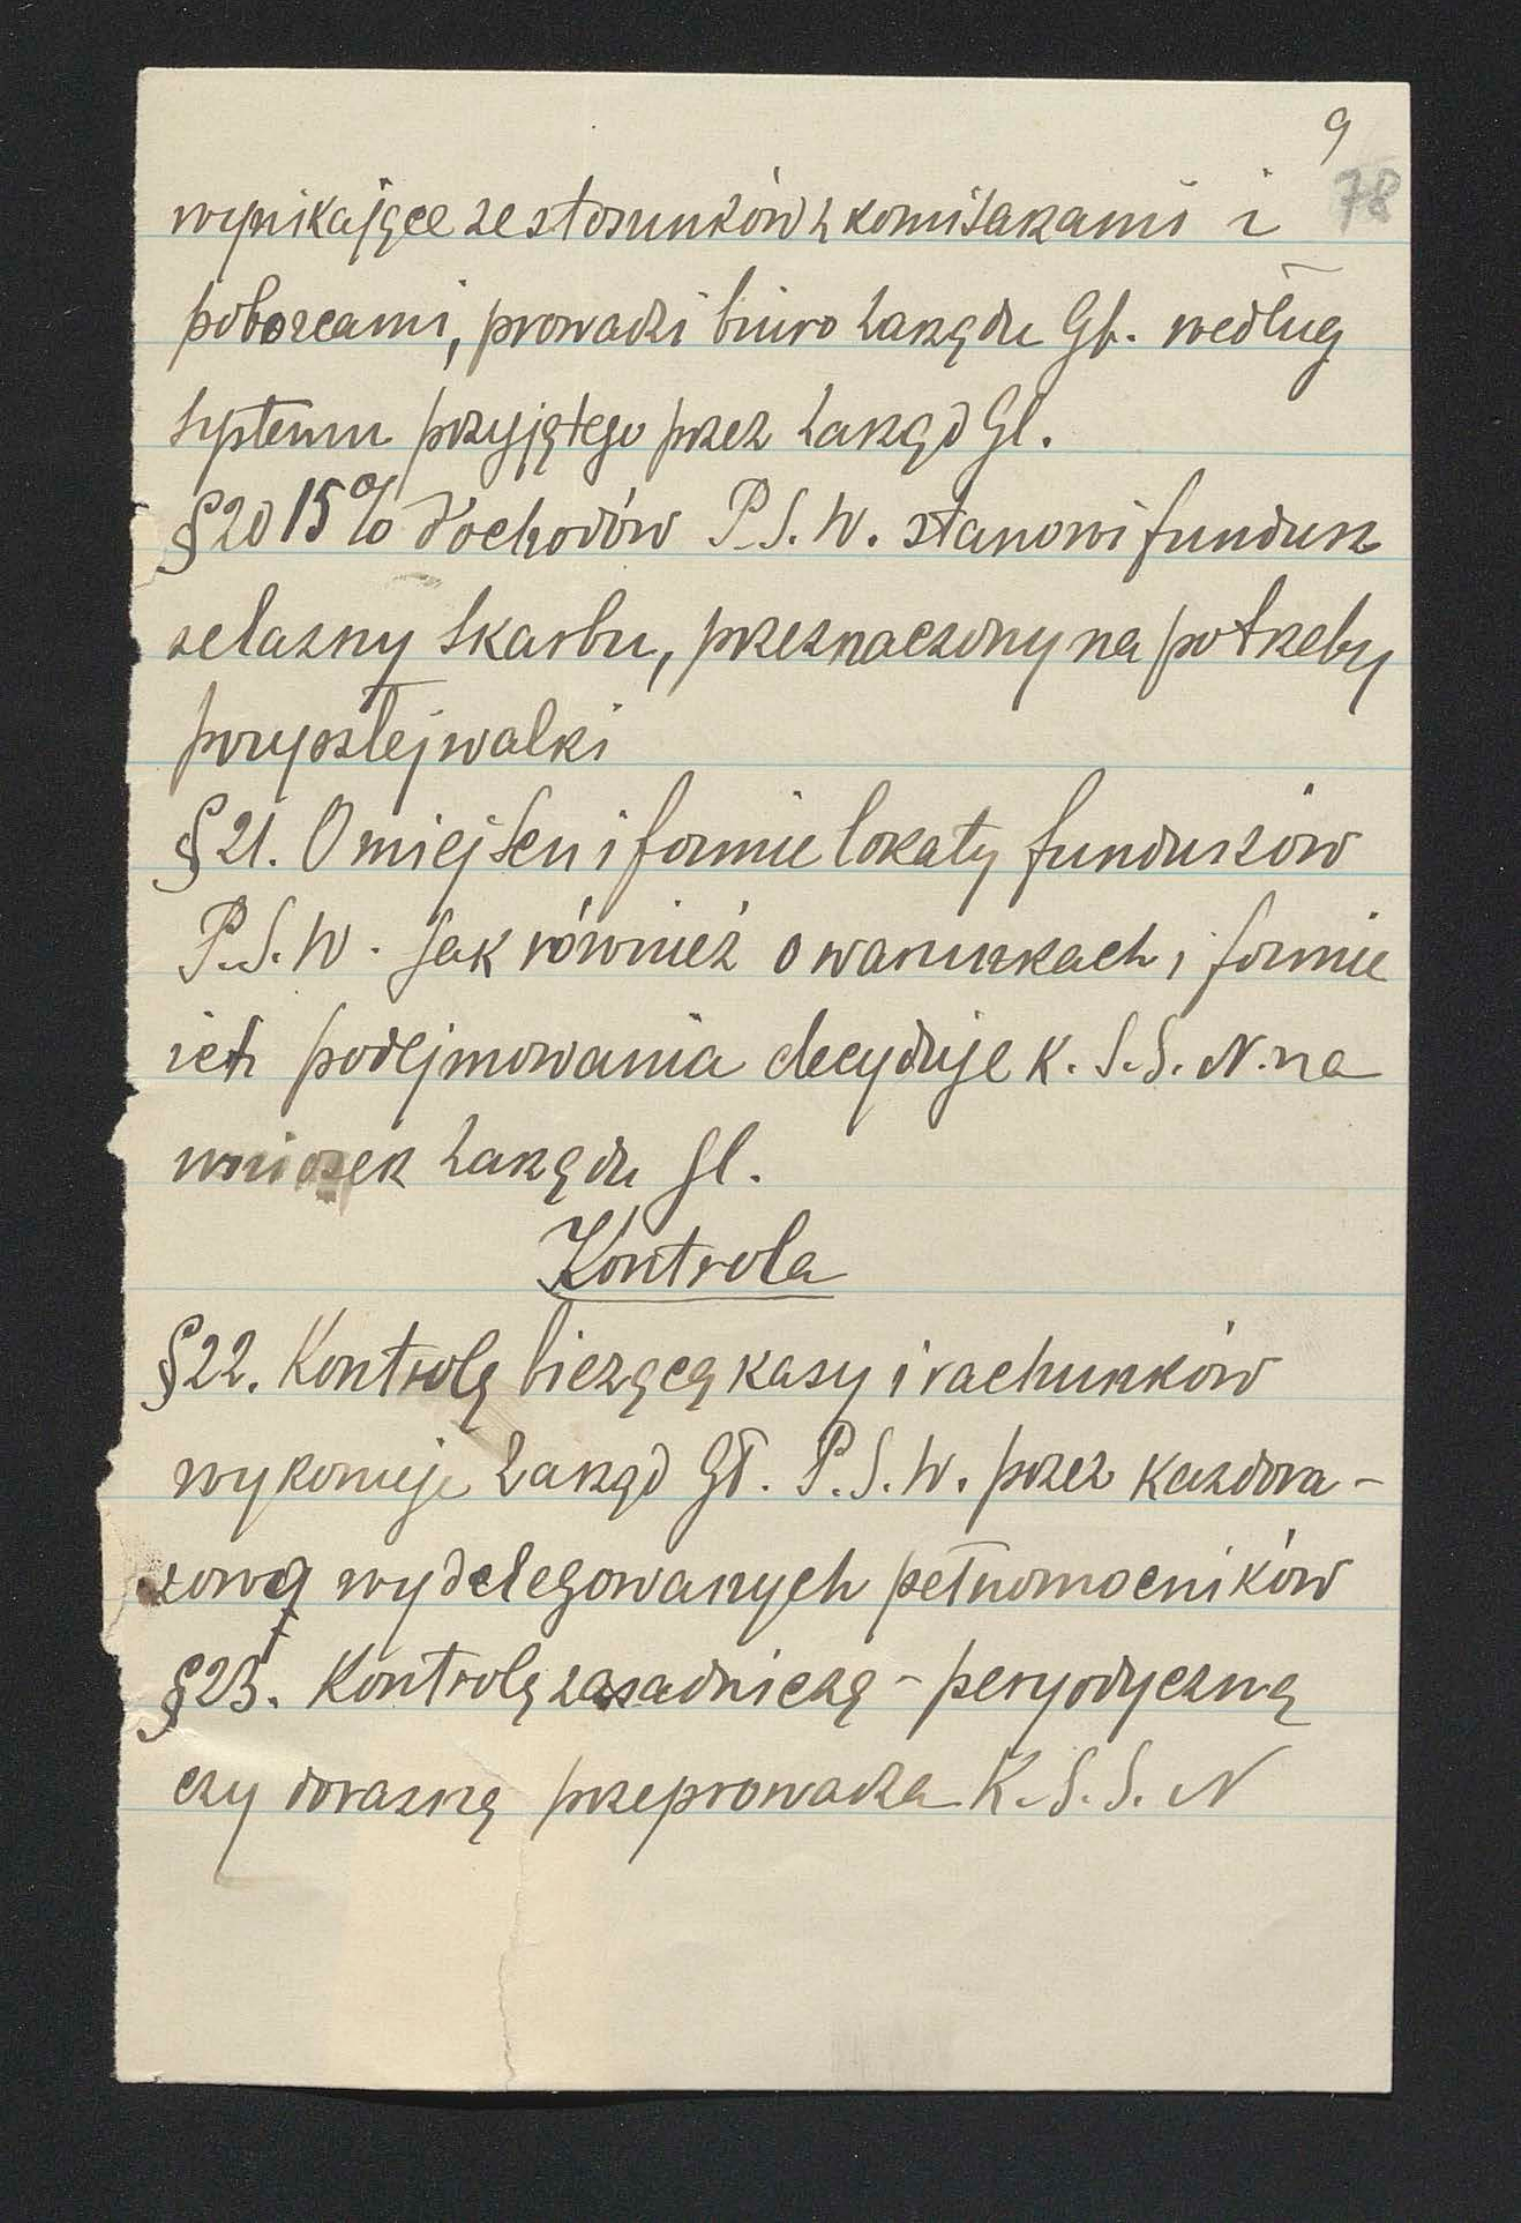 9
78
wynikające ze stosunków z komisarzami i
poborcami, prowadzi biuro Zarządu Gł. według
systemu przyjętego przez Zarząd Gł.
§20 15% dochodów P.S.W. stanowi fundusz
żelazny Skarbu, przeznaczony na potrzeby
przyszłej walki
§21. O miejscu i formie lokaty funduszów
P.S.W. jak również o warunkach i formie
ich podejmowania decyduje K.S.S.N. na
wniosek Zarządu Gł.
Kontrola
§22. Kontrolę bieżącą kasy i rachunków
wykonuje Zarząd Gł. P.S.W. przez każdora-
zowo wydelegowanych pełnomocników
§23. Kontrolę zasadniczą - peryodyczną
czy doraźną przeprowadza K.S.S.N